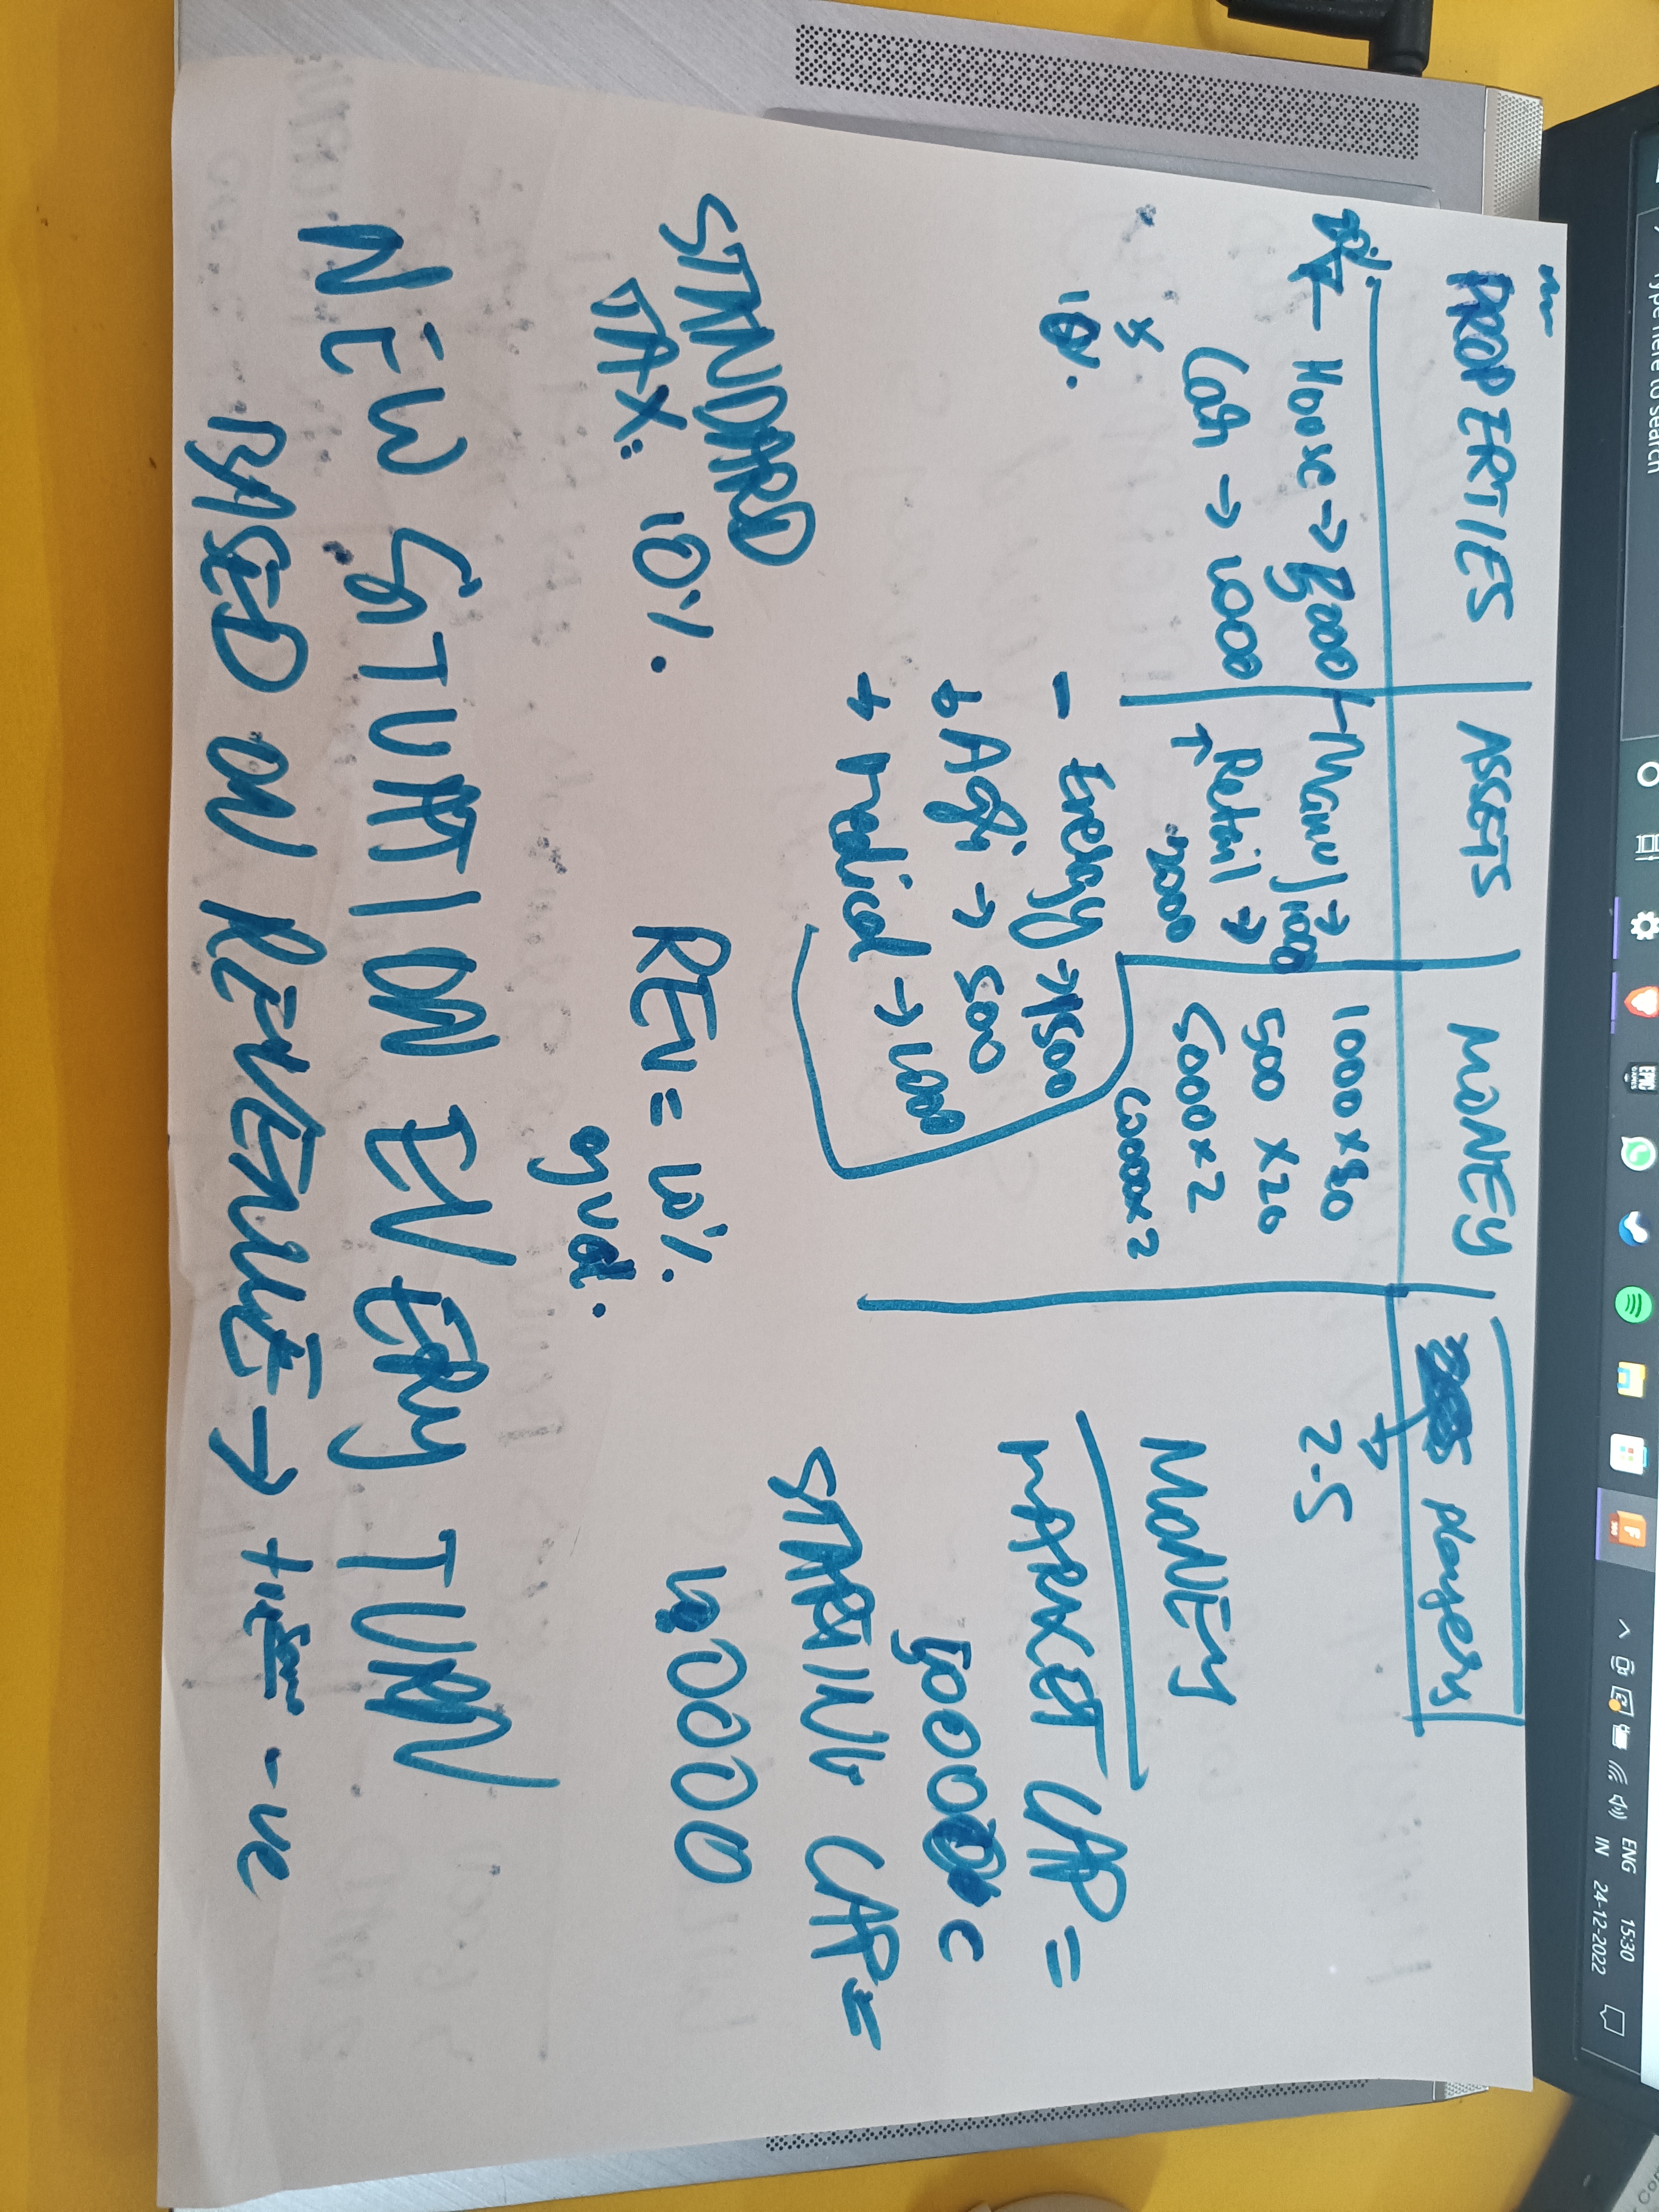 PROPERTIES ASSETS MONEY Players
House → 5000 Manu → 1000 1000 x 80 2-5
Cash → 1000 Retail → 2000 500 x 20
5000 x 2
10000 x 2
10%.
- Energy → 1500
+ Agri → 500
+ Medical → 1000
MONEY
MARKET CAP =
STARTING CAP =
10000
STANDARD
TAX: 10%.
REV = 10%.
NEW SITUATION EVERY TURN
BASED ON REVENUE → +ve - ve
Type here to search
ENG
IN
15:30
24-12-2022